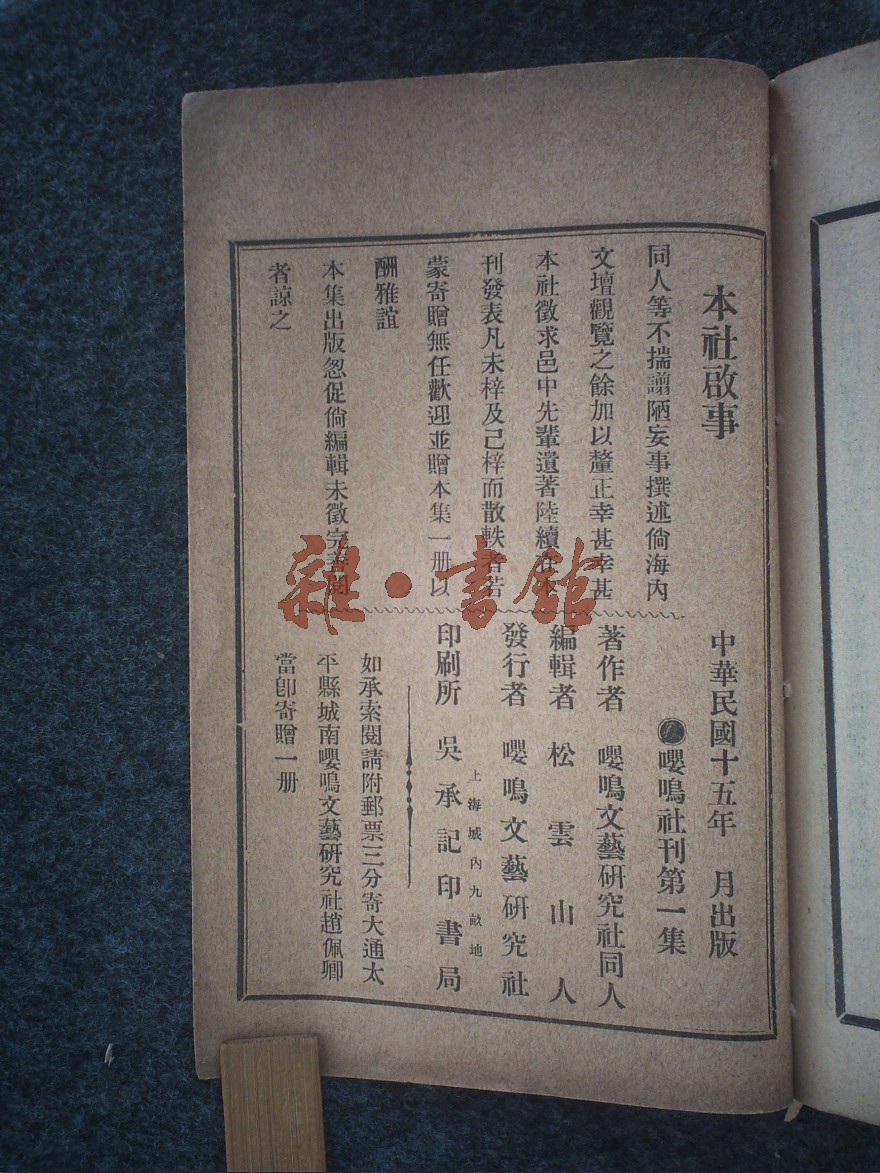 本社啟事
同人等不揣譾陋妄事撰述倘海內
文壇觀覽之餘加以釐正幸甚幸甚
本社徵求邑中先輩遺著陸續在本
刊發表凡未梓及已梓而散軼者若
蒙寄贈無任歡迎並贈本集一册以
酬雅誼
本集出版怱促倘編輯未徵完善閱
者諒之
中華民國十五年 月出版
嚶鳴社刊第一集
著作者 嚶鳴文藝硏究社同人
編輯者 松雲山人
發行者 嚶鳴文藝硏究社
上海城內九畝地
印刷所 吳承記印書局
如承索閱請附郵票三分寄大通太
平縣城南嚶鳴文藝硏究社趙佩卿
當卽寄贈一册
雜·書館